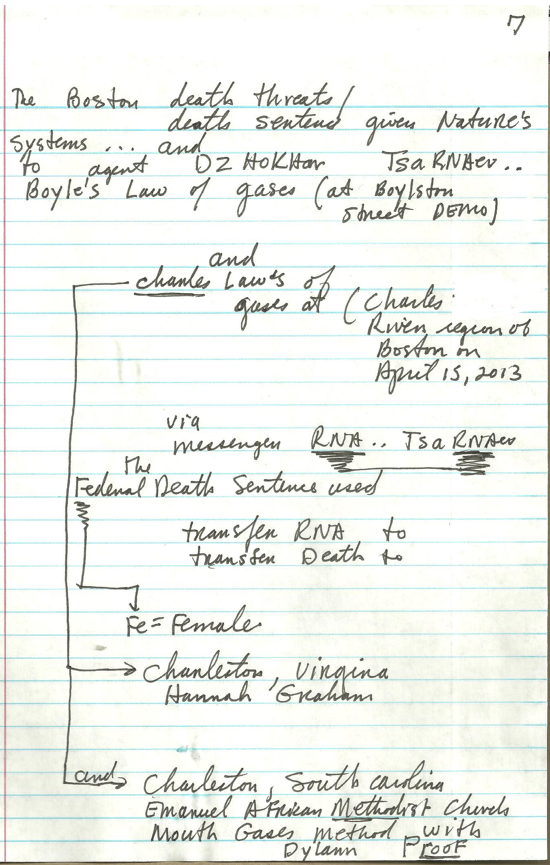 7
The Boston death threats/
death sentence given Nature's
systems ... and
to agent DZHOKHar TsaRNAev..
Boyle's Law of gases (at Boylston
Street DEMO)
and
Charles Law's of
gases at (Charles
River region of
Boston on
April 15, 2013
via
messenger RNA .. TsaRNAev
the
Federal Death Sentence used
transfer RNA to
transfer Death to
Fe = Female
Charleston, Virgina
Hannah Graham
and
Charleston, South Carolina
Emanuel African Methodist Church
Mouth Gases method with
Dylann Proof